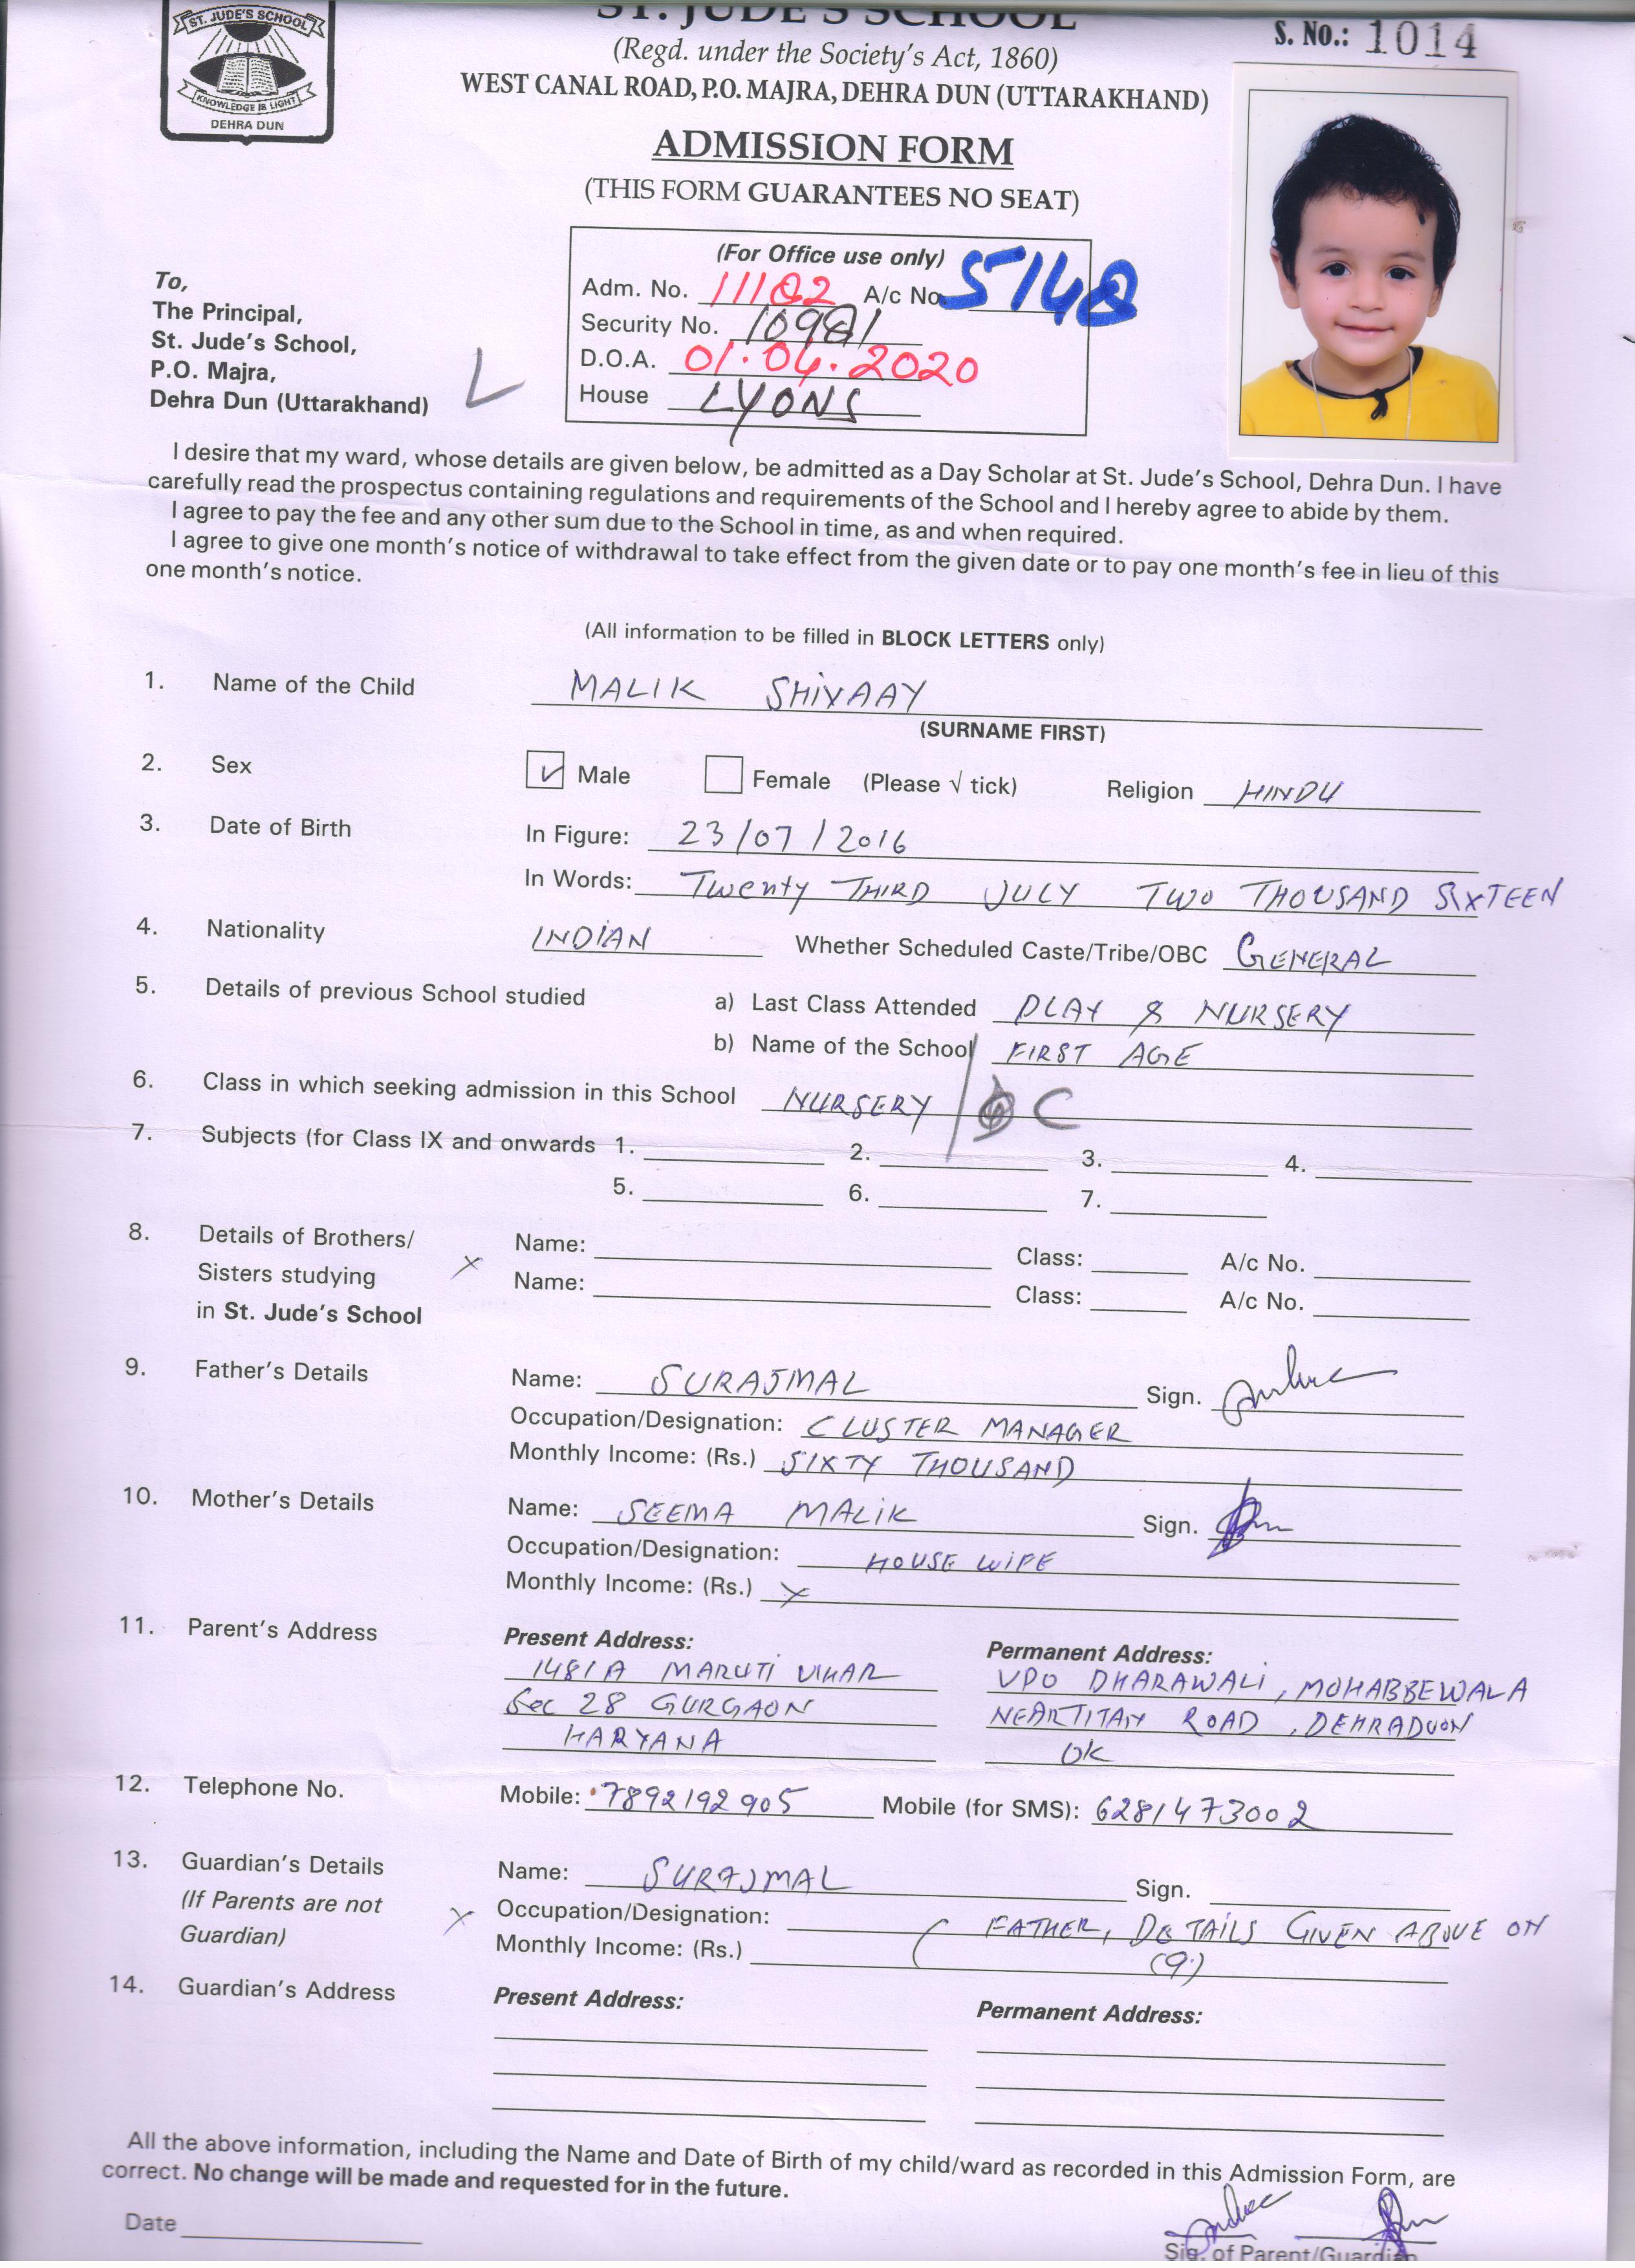 ST. JUDE'S SCHOOL
KNOWLEDGE IS LIGHT
DEHRA DUN
ST. JUDE'S SCHOOL
S. No.: 1014
(Regd. under the Society's Act, 1860)
WEST CANAL ROAD, P.O. MAJRA, DEHRA DUN (UTTARAKHAND)
ADMISSION FORM
(THIS FORM GUARANTEES NO SEAT)
(For Office use only)
Adm. No. 11182 A/c No. 5148
Security No. 10981
D.O.A. 01.04.2020
House LYONS
To,
The Principal,
St. Jude's School,
P.O. Majra,
Dehra Dun (Uttarakhand)
I desire that my ward, whose details are given below, be admitted as a Day Scholar at St. Jude's School, Dehra Dun. I have
carefully read the prospectus containing regulations and requirements of the School and I hereby agree to abide by them.
I agree to pay the fee and any other sum due to the School in time, as and when required.
I agree to give one month's notice of withdrawal to take effect from the given date or to pay one month's fee in lieu of this
one month's notice.
(All information to be filled in BLOCK LETTERS only)
1. Name of the Child MALIK SHIVAAY
(SURNAME FIRST)
2. Sex ✓ Male Female (Please √ tick) Religion HINDU
3. Date of Birth In Figure: 23/07/2016
In Words: Twenty THIRD JULY TWO THOUSAND SIXTEEN
4. Nationality INDIAN Whether Scheduled Caste/Tribe/OBC GENERAL
5. Details of previous School studied a) Last Class Attended PLAY & NURSERY
b) Name of the School FIRST AGE
6. Class in which seeking admission in this School NURSERY / C
7. Subjects (for Class IX and onwards 1. 2. 3. 4.
5. 6. 7.
8. Details of Brothers/ Name: Class: A/c No.
Sisters studying × Name: Class: A/c No.
in St. Jude's School
9. Father's Details Name: SURAJMAL Sign.
Occupation/Designation: CLUSTER MANAGER
Monthly Income: (Rs.) SIXTY THOUSAND
10. Mother's Details Name: SEEMA MALIK Sign.
Occupation/Designation: HOUSE WIFE
Monthly Income: (Rs.) ×
11. Parent's Address Present Address: Permanent Address:
1481A MARUTI VIHAR VPO DHARAWALI, MOHABBEWALA
Sec 28 GURGAON NEARTITAN ROAD, DEHRADUON
HARYANA UK
12. Telephone No. Mobile: 7892192905 Mobile (for SMS): 6281473002
13. Guardian's Details Name: SURAJMAL Sign.
(If Parents are not × Occupation/Designation: FATHER, DETAILS GIVEN ABOVE ON
Guardian) Monthly Income: (Rs.) (9.)
14. Guardian's Address Present Address: Permanent Address:
All the above information, including the Name and Date of Birth of my child/ward as recorded in this Admission Form, are
correct. No change will be made and requested for in the future.
Date
Sig. of Parent/Guardian